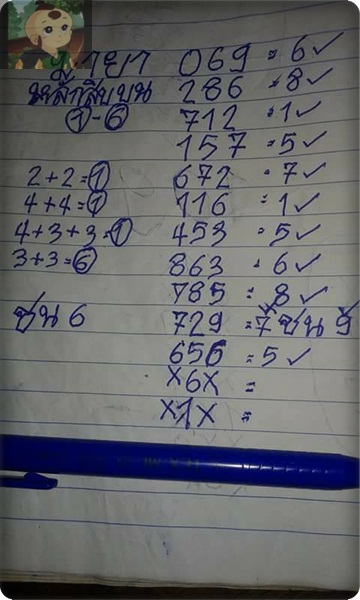 069 = 6 ✓
เหลือสิบบน 286 = 8 ✓
①-⑥ 712 = 1 ✓
157 = 5 ✓
2+2=① 672 = 7 ✓
4+4=① 116 = 1 ✓
4+3+3=① 453 = 5 ✓
3+3=⑥ 863 = 6 ✓
785 = 8 ✓
ชน 6 729 = 7 ชน 9
656 = 5 ✓
x6x =
x1x =